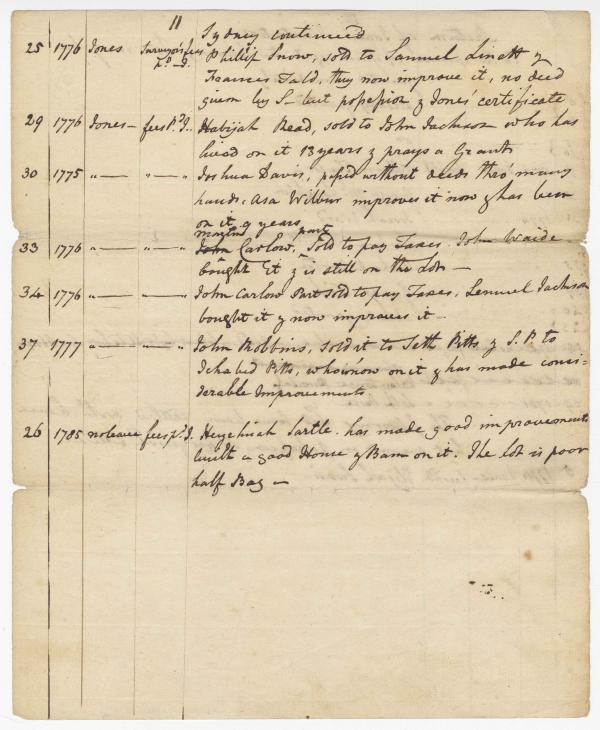 11
Sydney continued
25 1776 Jones Surveyors fees Phillip Snow, sold to Samuel Linett &
pd J. Frances Tald, they now improve it, no deed
given by S- but possession & Jones' certificate
29 1776 Jones- fees Pd J.. Habijah Read, sold to John Jackson who has
lived on it 13 years & prays a Grant
30 1775 "— "— " Joshua Davis, passed without deeds thro' many
hands. Asa Wilbur improves it now & has been
on it 9 years
33 1776 "— "— " John Carlow, part Sold to pay Taxes. John Waide
bought it & is still on the Lot—
34 1776 "— "— " John Carlow Part sold to pay Taxes, Lemuel Jackson
bought it & now improves it -
37 1777 "— "— " John Robbins, sold it to Seth Pitts & S. P. to
Ichabod Pitts, who is now on it & has made consi-
derable Improvements
26 1785 no leave fees pd. J. Hezekiah Sartle. has made good improvements
built a good House & Barn on it. The lot is poor
half Bog —